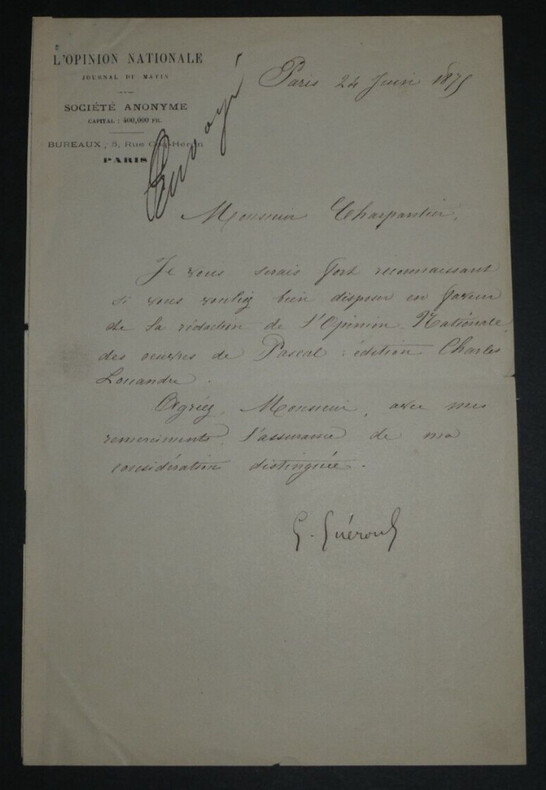 L'OPINION NATIONALE
JOURNAL DU MATIN
SOCIÉTÉ ANONYME
CAPITAL : 400,000 FR.
BUREAUX, 5, Rue Coq-Héron
PARIS
Envoyé
Paris 24 Juin 1875
Monsieur Charpentier,
Je vous serais fort reconnaissant
si vous vouliez bien disposer en faveur
de la rédaction de l'Opinion Nationale
des œuvres de Pascal : édition Charles
Louandre.
Agréez, Monsieur, avec mes
remerciments l'assurance de ma
considération distinguée.
G. Guéroult